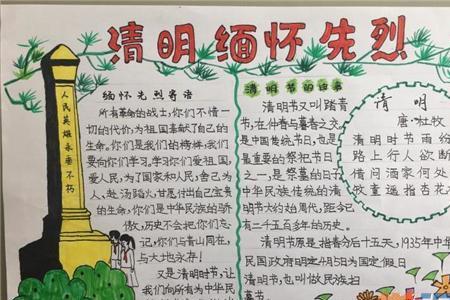 清明缅怀先烈
人民英雄永垂不朽
缅怀先烈寄语
所有革命的战士,你们不惜一
切的代价,为祖国奉献了自己的生
命。你们是我们的榜样,我们
要向你们学习。学习你们爱祖国,
爱人民,为了国家和人民,舍己为
人、赴汤蹈火,甘愿付出自己宝贵
的生命,你们是中华民族的骄
傲,历史不会把你们忘
记,你们与青山同在,
与大地永存!
又是清明时节,让
我们向所有为中华民
清明节的由来
清明节又叫踏青
节,在仲春与暮春之交,
是中国传统节日,也是
最重要的祭祀节日
之一,是祭墓的日子
中华民族传统的清
明节大约始周代,距今已
有二千五百多年的历史。
清明节原是指春分后十五天,1935年中华
民国政府明定4月5日为国定假日
清明节,也叫做民族扫
墓节。
清 明
唐·杜牧
清明时节雨纷
路上行人欲断
借问酒家何处
牧童遥指杏花